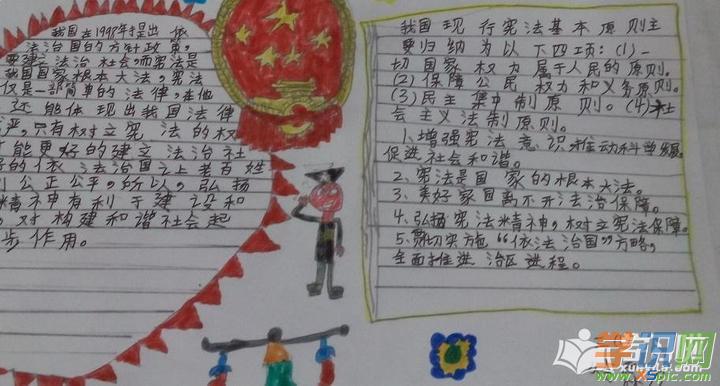 我国在1998年提出 依
法治国的方针政策,
要建立法治 社会,而宪法是
我国国家根本大法,宪法
仅是一部简单的法律,在他
还 能体 现出我国法律
严,只有树立宪 法 的权
才能更好的建立 法治社
的依 法治国之上老百姓
公正公平,所以,弘扬
精神有利于建 设和
对 构建和谐社会起
步 作用。
我国现 行宪法基本原则主
要归纳为以下四项:(1)一
切国家 权力 属于人民的原则。
(2)保障公民 权力 和义务原则。
(3)民主 集中 制原 则。(4)社
会主义 法制原则。
1、增强宪法 意 识,推动科学发展。
促进社会和谐。
2、宪法是国 家的根本大法。
3、美好家园离不开法治保障。
4、弘扬宪法精神,树立宪法保障。
5、贯切实施“依法治国”方略,
全面推进 治区 进程。
学识网
www.xspic.com